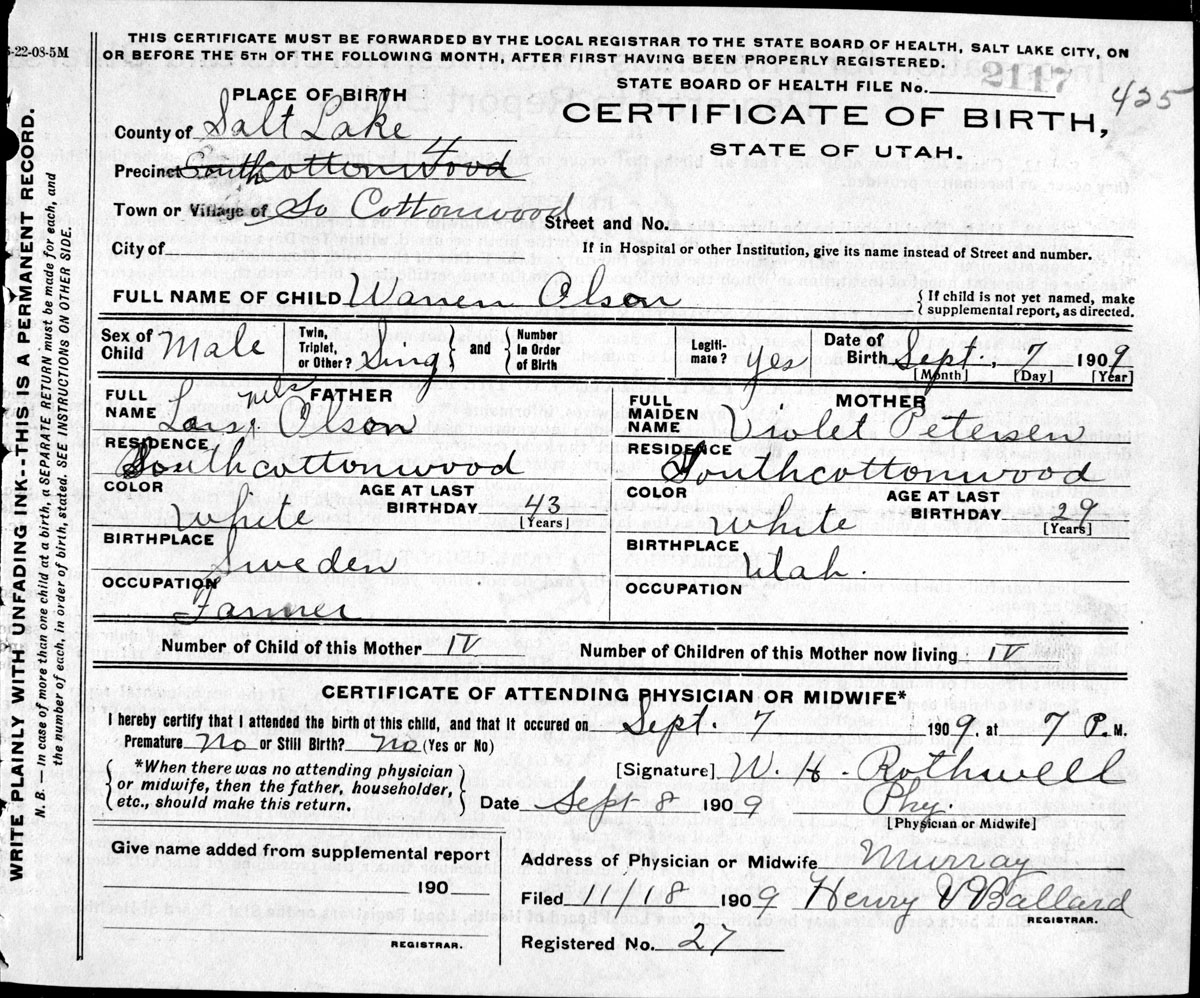 5-22-08-5M
THIS CERTIFICATE MUST BE FORWARDED BY THE LOCAL REGISTRAR TO THE STATE BOARD OF HEALTH, SALT LAKE CITY, ON
OR BEFORE THE 5TH OF THE FOLLOWING MONTH, AFTER FIRST HAVING BEEN PROPERLY REGISTERED.
STATE BOARD OF HEALTH FILE No. 2117
425
PLACE OF BIRTH
CERTIFICATE OF BIRTH,
STATE OF UTAH.
County of Salt Lake
4
Precinct Southcottonwood
Town or Village of So Cottonwood Street and No.
City of If in Hospital or other Institution, give its name instead of Street and number.
FULL NAME OF CHILD Warren Olson { If child is not yet named, make supplemental report, as directed.
Sex of Child Male Twin, Triplet, or Other? Sing } and { Number In Order of Birth Legiti-mate? yes Date of Birth Sept. 7 1909
[Month] [Day] [Year]
FATHER
FULL NAME Lars Nils Olson
RESIDENCE Southcottonwood
COLOR White AGE AT LAST BIRTHDAY 43 [Years]
BIRTHPLACE Sweden
OCCUPATION Farmer
MOTHER
FULL MAIDEN NAME Violet Petersen
RESIDENCE Southcottonwood
COLOR White AGE AT LAST BIRTHDAY 29 [Years]
BIRTHPLACE Utah.
OCCUPATION
Number of Child of this Mother IV Number of Children of this Mother now living IV
CERTIFICATE OF ATTENDING PHYSICIAN OR MIDWIFE*
I hereby certify that I attended the birth of this child, and that it occured on Sept 7 1909, at 7 P.M.
Premature No or Still Birth? No (Yes or No)
{ *When there was no attending physician or midwife, then the father, householder, etc., should make this return. }
[Signature] W. H. Rothwell
Date Sept 8 1909 Phy.
[Physician or Midwife]
Give name added from supplemental report
190
REGISTRAR.
Address of Physician or Midwife Murray
Filed 11/18 1909 Henry V Ballard
REGISTRAR.
Registered No. 27
WRITE PLAINLY WITH UNFADING INK--THIS IS A PERMANENT RECORD.
N. B. — In case of more than one child at a birth, a SEPARATE RETURN must be made for each, and
the number of each, in order of birth, stated. SEE INSTRUCTIONS ON OTHER SIDE.